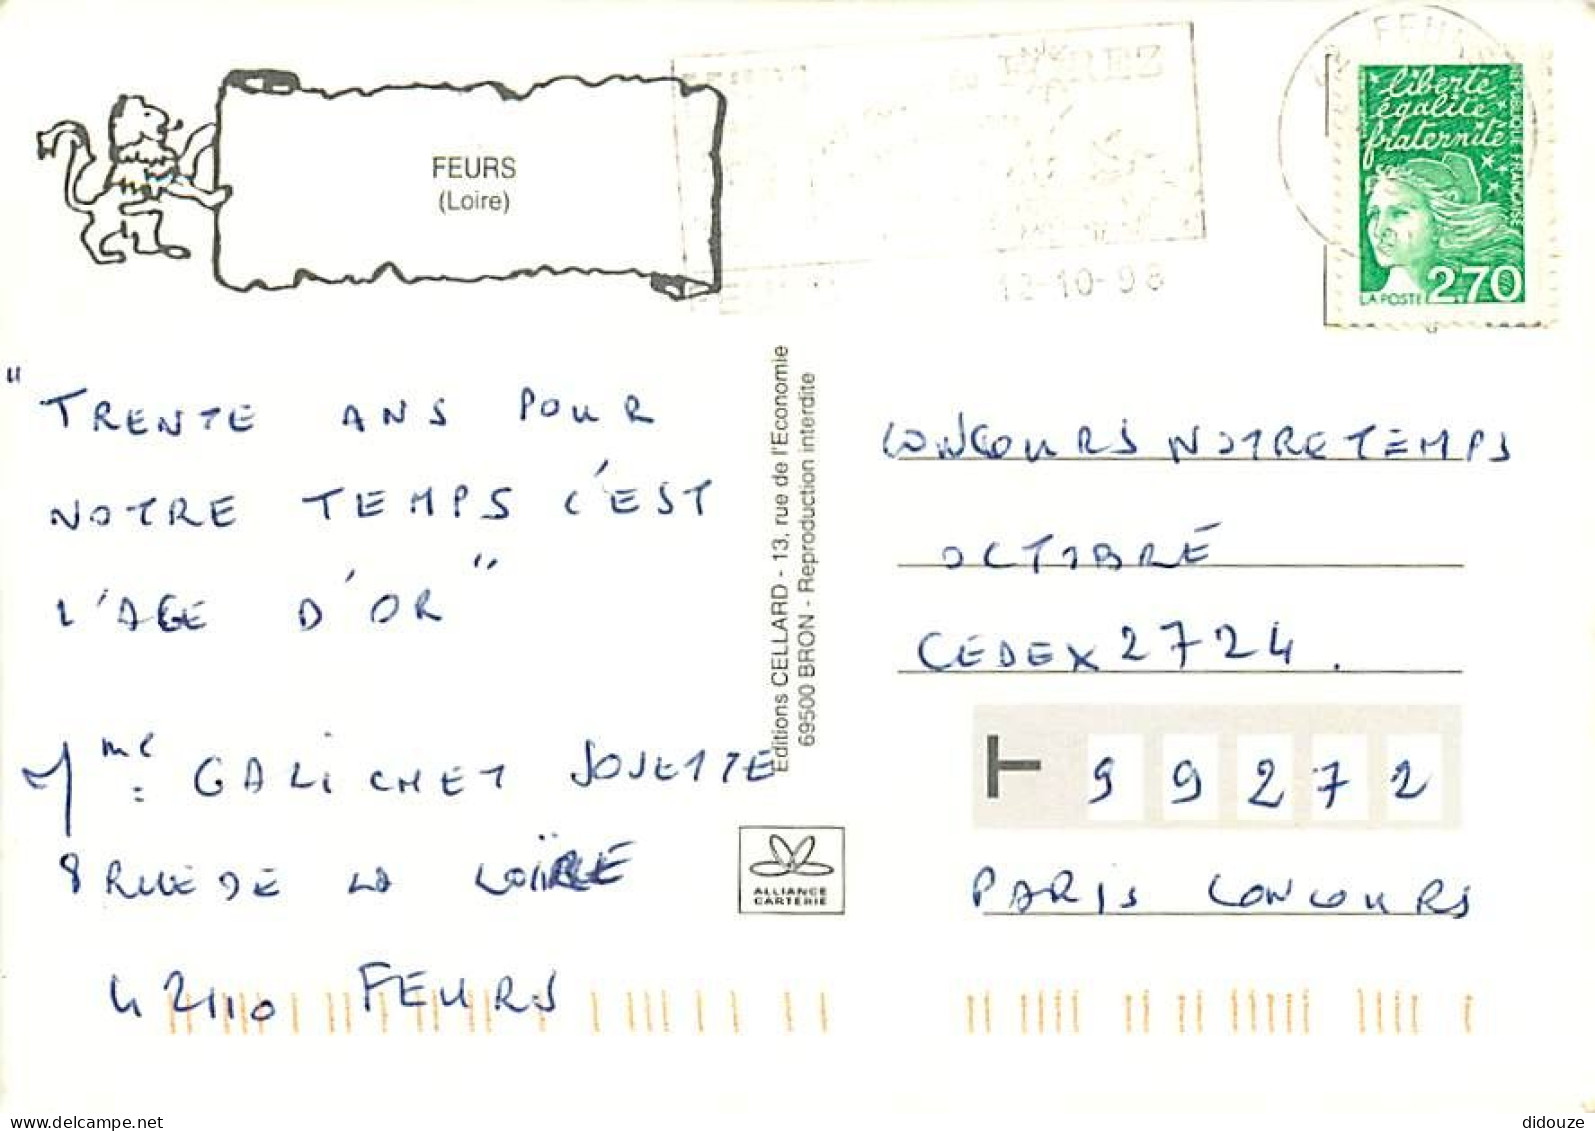 FEURS
(Loire)
FEURS
12-10-98
liberté
égalité
fraternité
REPUBLIQUE FRANÇAISE
LA POSTE 2,70
" TRENTE ANS POUR
NOTRE TEMPS C'EST
L'AGE D'OR "
Mme GALICHET JOSETTE
8 RUE DE LA LOIRE
42110 FEURS
Editions CELLARD - 13, rue de l'Economie
69500 BRON - Reproduction interdite
ALLIANCE
CARTERIE
CONCOURS NOTRE TEMPS
OCTOBRE
CEDEX 2724.
99272
PARIS CONCOURS
didouze